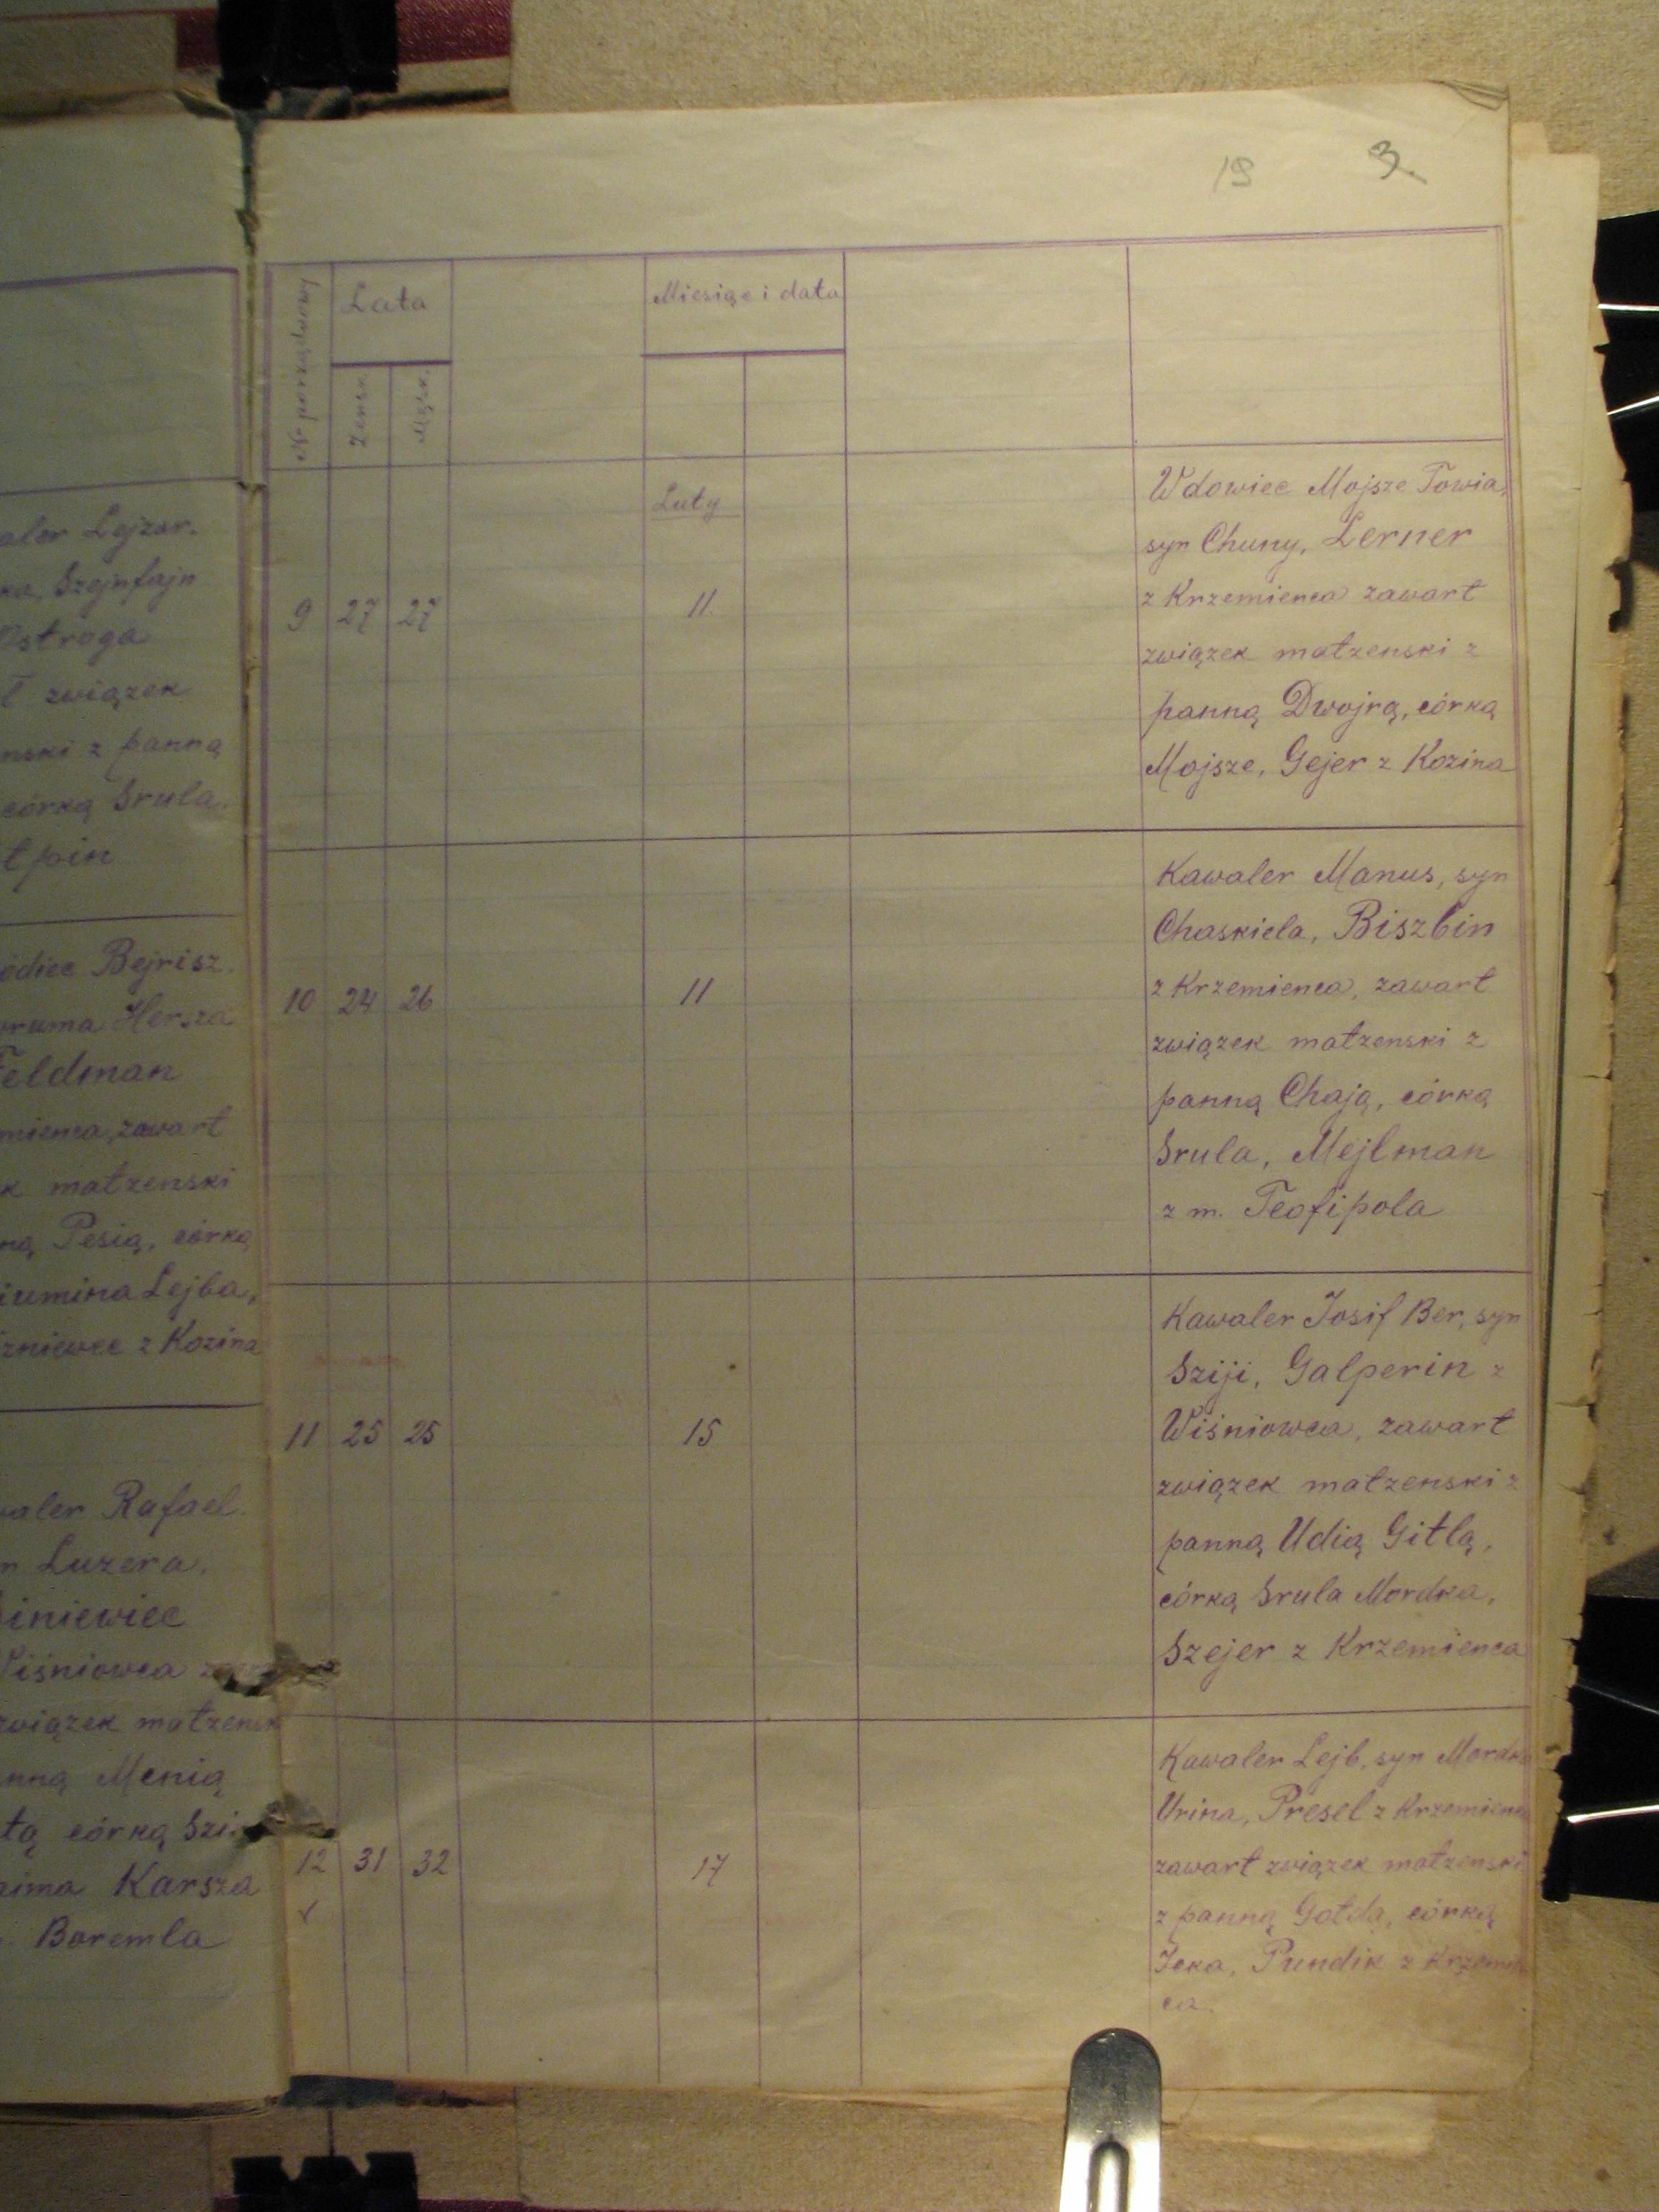 aler Lejzor.
ka, Szejnfajn
Ostroga
ł związek
nski z panną
córką Srula.
tpin
odiec Bejrisz.
wruma Hersza
Feldman
mienca, zawart
k małzenski
ną Pesią, córką
iumina Lejba,
zniewec z Kozina
waler Rafael.
n Luzera,
iniewiec
Wiśniowca
związek małzensk
nną Menią
tą córką Szi
aima Karsza
Boremla
19 3.
№ porządkowy
Lata
Miesiąc i data
Żensk.
Męsk.
Luty
Wdowiec Mojsze Towia,
syn Chuny, Lerner
9 27 27 11. z Krzemienca zawart
związek małzenski z
panną Dwojrą, córką
Mojsze, Gejer z Kozina
Kawaler Manus, syn
Chaskiela, Biszbin
10 24 26 11 z Krzemienca, zawart
związek małzenski z
panną Chają, córką
Srula, Mejlman
z m. Teofipola
Kawaler Josif Ber, syn
Sziji, Galperin z
11 25 25 15 Wiśniowca, zawart
związek małzenski z
panną Udią Gitlą,
córką Srula Mordka,
Szejer z Krzemienca
Kawaler Lejb, syn Mordka
Urina, Presel z Krzemienca
12 31 32 17 zawart związek małzenski
z panną Gołda, córką
Icka, Pundik z Krzemien
ca.